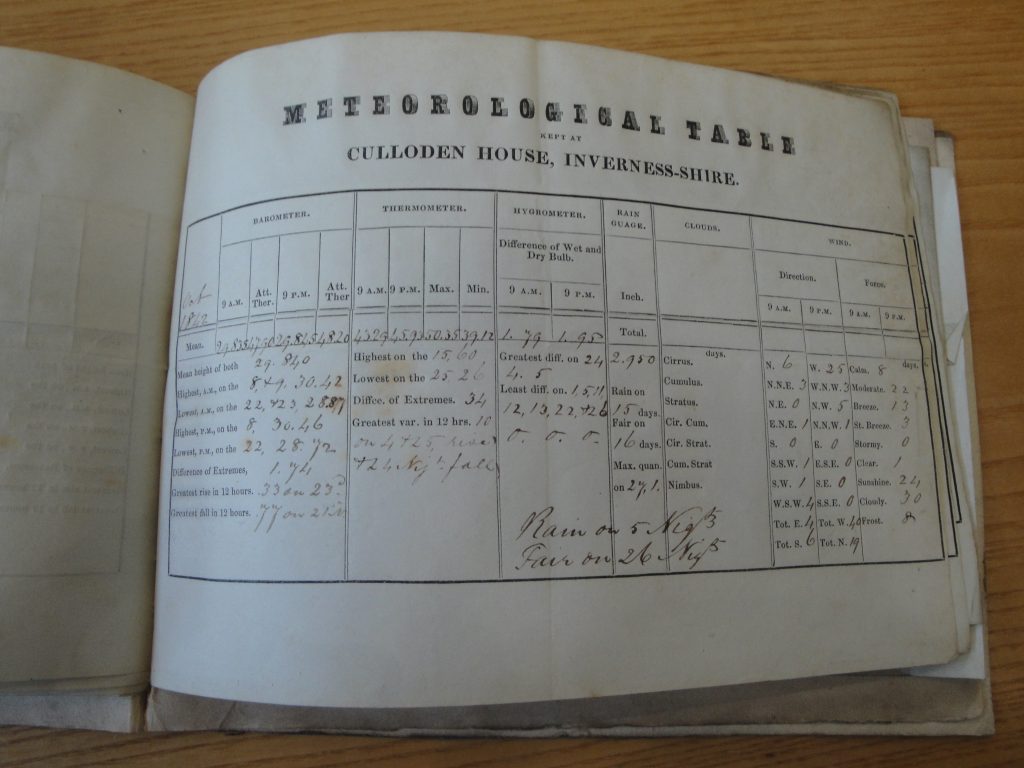 METEOROLOGICAL TABLE
KEPT AT
CULLODEN HOUSE, INVERNESS-SHIRE.
BAROMETER. THERMOMETER. HYGROMETER. RAIN GUAGE. CLOUDS. WIND.
Difference of Wet and Dry Bulb. Direction. Force.
Oct 1842
9 A.M. Att. Ther. 9 P.M. Att. Ther 9 A.M. 9 P.M. Max. Min. 9 A.M. 9 P.M. Inch. 9 A.M. 9 P.M. 9 A.M. 9 P.M.
Mean. 1.79 1.95 Total.
Mean height of both 29.840
Highest, A.M., on the 8, & 9. 30.42
Lowest, A.M., on the 22, & 23, 28.87
Highest, P.M., on the 8, 30.46
Lowest, P.M., on the 22, 28.72
Difference of Extremes, 1.74
Greatest rise in 12 hours. 33 on 23d
Greatest fall in 12 hours. 77 on 21st
Highest on the 15, 60
Lowest on the 25 26
Diffce. of Extremes. 34
Greatest var. in 12 hrs. 10
on 4 & 25, rise
& 24 Nigt. fall
Greatest diff. on 24
4.5
Least diff. on 1, 5, 11,
12, 13, 22, & 26
0. 0. 0.
2.950
Rain on
15 days.
Fair on
16 days.
Max. quan.
on 27, 1.
days.
Cirrus.
Cumulus.
Stratus.
Cir. Cum.
Cir. Strat.
Cum. Strat
Nimbus.
N. 6 W. 25 Calm, 8 days.
N.N.E. 3 W.N.W. 3 Moderate. 22
N.E. 0 N.W. 5 Breeze. 13
E.N.E. 1 N.N.W. 1 St. Breeze. 3
S. 0 E. 0 Stormy. 0
S.S.W. 1 E.S.E. 0 Clear. 1
S.W. 1 S.E. 0 Sunshine. 24
W.S.W. 4 S.S.E. 0 Cloudy. 30
Tot. E. 4 Tot. W. 40 Frost. 8
Tot. S. 6 Tot. N. 19
Rain on 5 Nigts
Fair on 26 Nigts